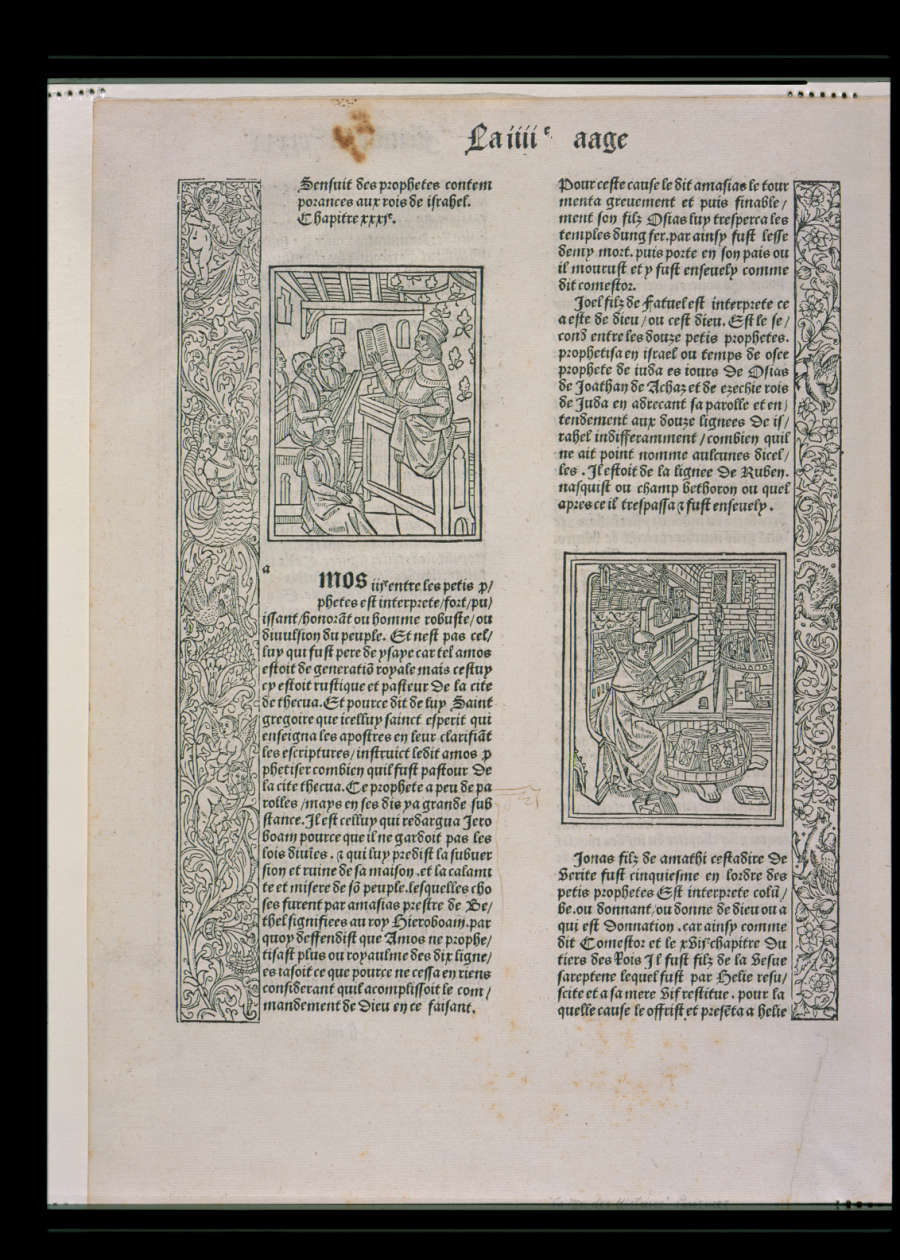 La iiii e aage
Sensuit des prophetes contem
porances aux rois de israhel.
Chapitre xxxi e.
a
mos iii e entre les petis p/
phetes est interprete/fort/pu/
issant/honorāt ou homme robuste/ou
diuulsion du peuple. Et nest pas cel/
luy qui fust pere de ysaye car tel amos
estoit de generatiō royale mais cestuy
cy estoit rustique et pasteur De la cite
de thecua. Et pource dit de luy Saint
gregoire que icelluy sainct esperit qui
enseigna les apostres en leur clarifiāt
les escriptures/instruict ledit amos p
phetiser combien quil fust pastour De
la cite thecua. Ce prophete a peu de pa
rolles/mays en ses dis ya grande sub
stance. Il est celluy qui redargua Iero
boam pource que il ne gardoit pas les
lois diuīes. ⁊ qui luy predist la subuer
sion et ruine de sa maison. et la calami
te et misere de sō peuple. lesquelles cho
ses furent par amasias prestre de Be/
thel signifiees au roy Hieroboam. par
quoy deffendist que Amos ne prophe/
tisast plus ou royaulme des dix ligne/
es taisoit ce que pource ne cessa en riens
considerant quil acomplissoit le com/
mandement de Dieu en ce faisant.
Pour ceste cause le dit amasias le tour
menta greuement et puis finable/
ment son filz Osias luy tresperca les
temples dung fer. par ainsy fust lesse
demy mort. puis porte en son pais ou
il mourust et y fust enseuely comme
dit comestor.
Joel filz de Fatuel est interprete ce
a este de dieu/ou cest dieu. Est le se/
cond entre les douze petis prophetes.
prophetisa en israel ou temps de osee
prophete de iuda es iours De Osias
de Joathan de Achaz et de ezechie rois
de Juda en adrecant sa parolle et en/
tendement aux douze lignees De is/
rahel indifferamment/combien quil
ne ait point nomme aulcunes dicel/
les. Il estoit de la lignee De Ruben.
nasquist ou champ bethoron ou quel
apres ce il trespassa ⁊ fust enseuely.
Jonas filz de amathi cestadire De
Verite fust cinquiesme en lordre des
petis prophetes Est interprete colū/
be. ou donnant/ou donne de dieu ou a
qui est Donnation. car ainsy comme
dit Comestor et le xvii e chapitre Du
tiers des Rois Il fust filz de la Vesue
sareptene lequel fust par Helie resu/
scite et a sa mere Vif restitue. pour la
quelle cause le offrist et presēta a helie